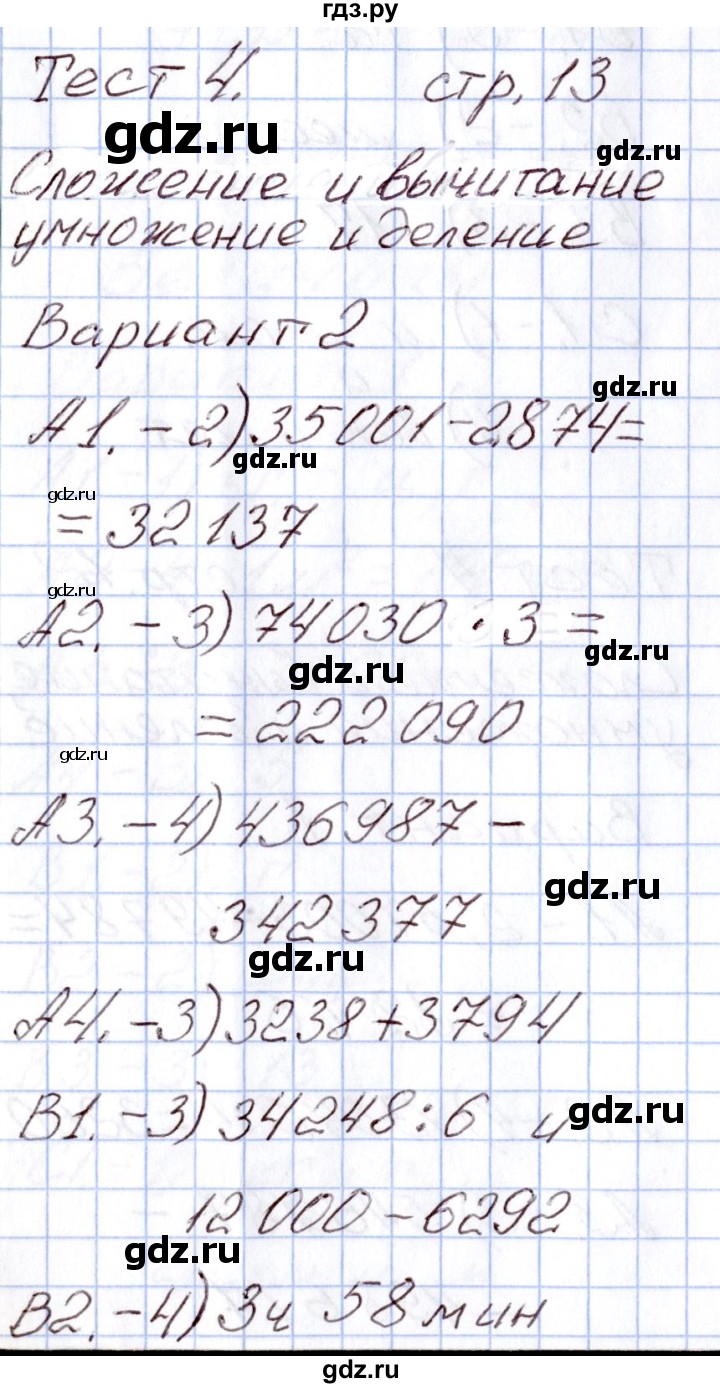 гдз.ру
Тест 4. стр. 13
gdz.ru
gdz.ru
Сложение и вычитание
умножение и деление
Вариант 2
gdz.ru
А1. - 2) 35001-2874=
gdz.ru
gdz.ru
= 32137
gdz.ru
А2. - 3) 74030 · 3 =
gdz.ru
gdz.ru
= 222090
gdz.ru
А3. - 4) 436987 -
gdz.ru
342377
gdz.ru
А4. - 3) 3238+3794
В1. - 3) 34248:6 и
gdz.ru
12000-6292
gdz.ru
В2. - 4) 3ч 58 мин
gdz.ru